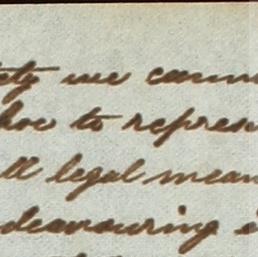 ty we cann
to repres
ll legal mean
deavouring